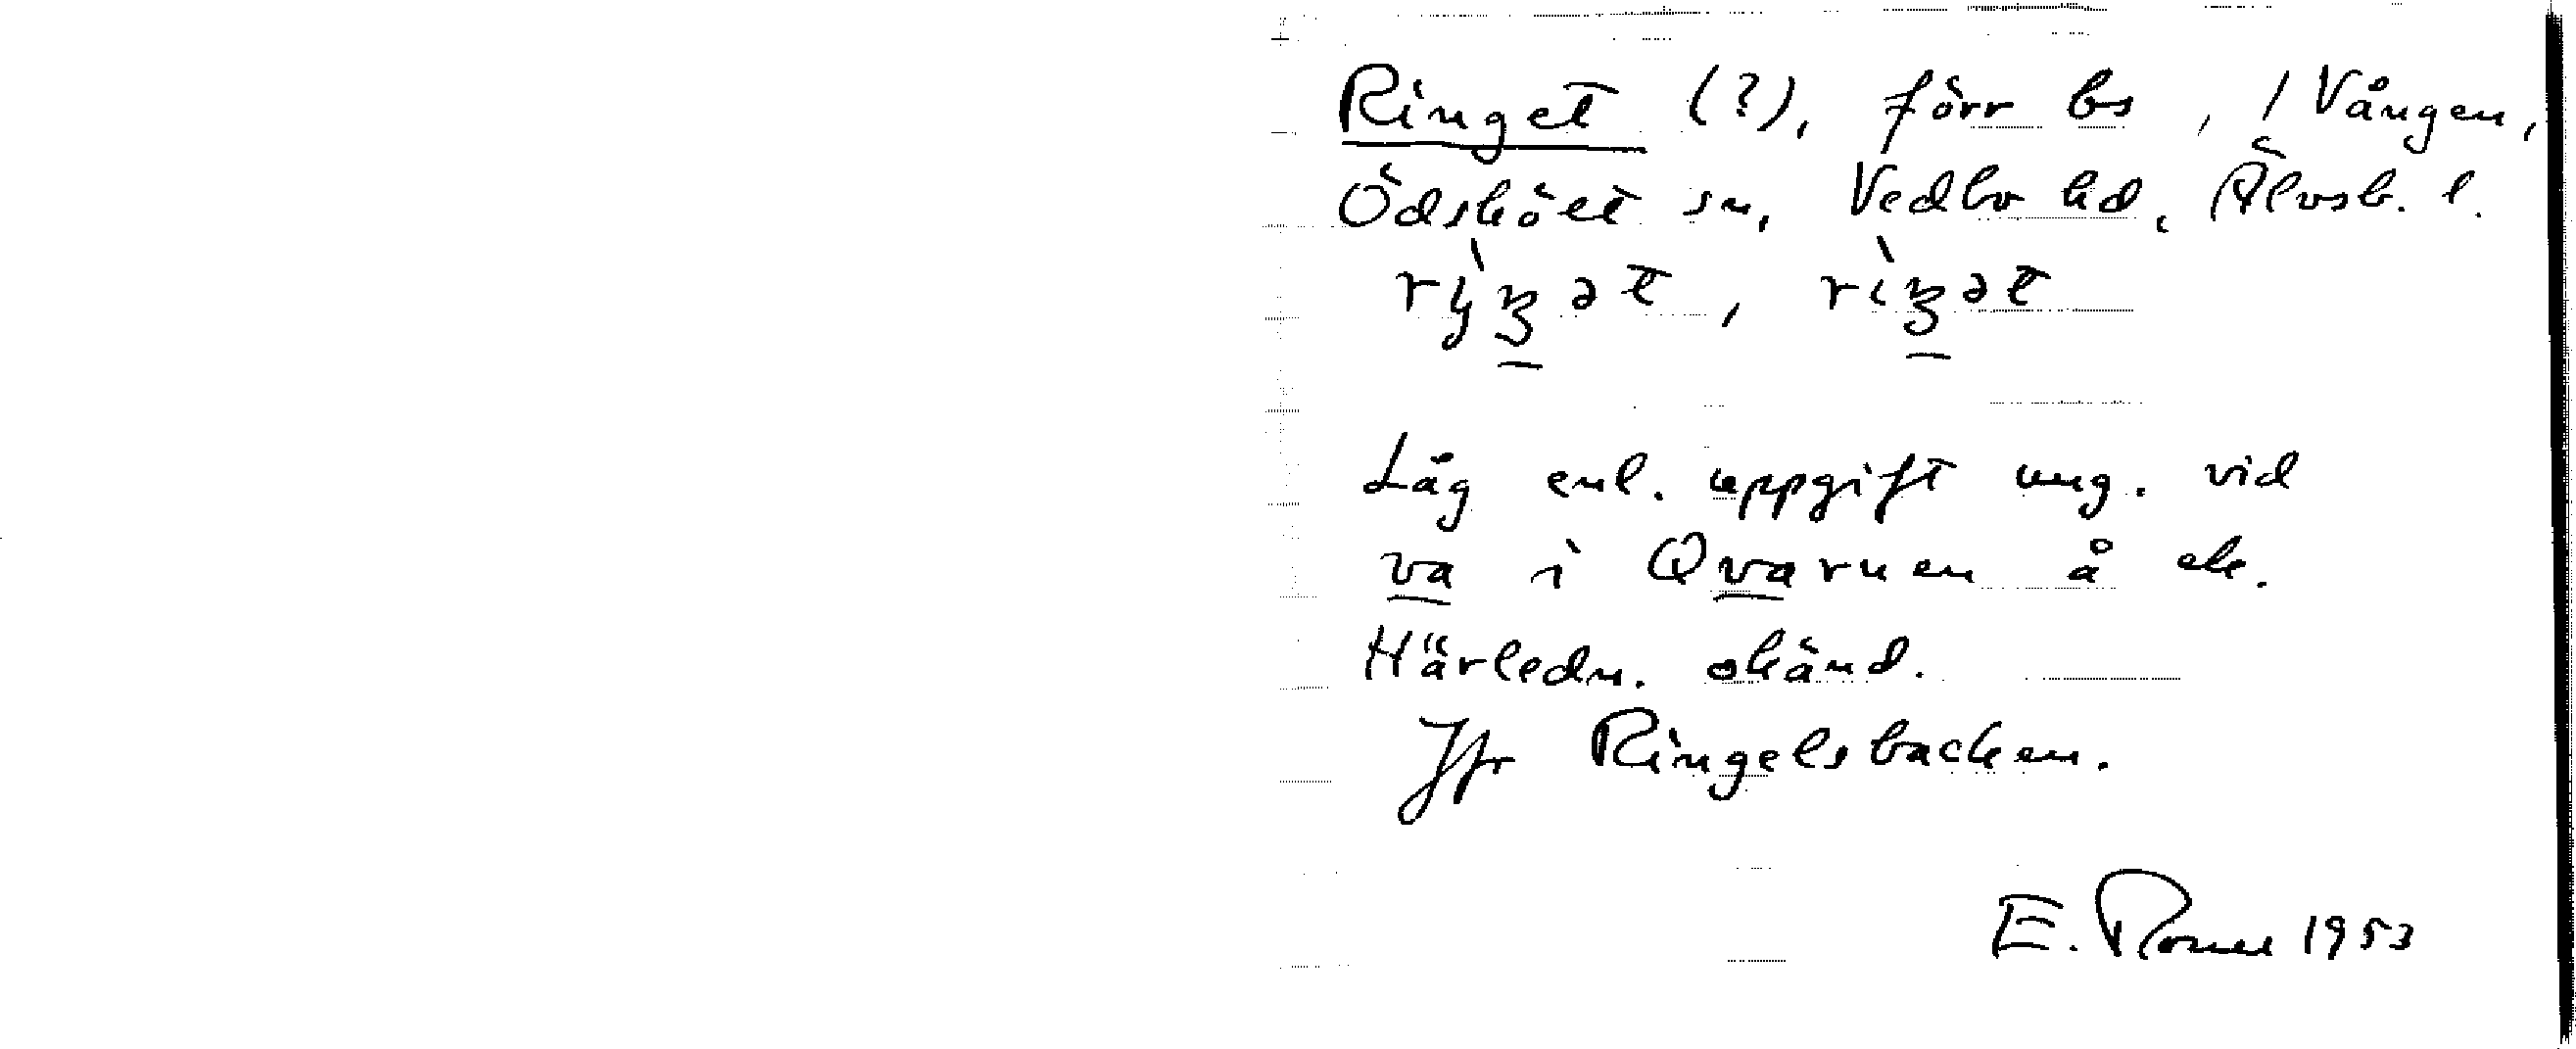 Ringet (?), förr bs, / Vången,
Ödskölt sn, Vedbo hd, Älvsb. l.
Låg enl. uppgift ung. vid
va i Qvarnen å ek.
Härledn. okänd.
Jfr Ringelsbacken.
E. 1953